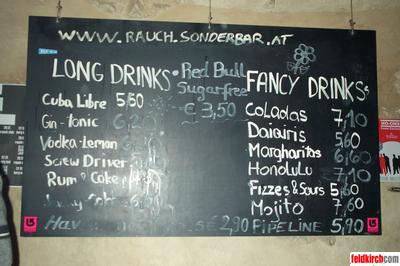 WWW.RAUCH.SONDERBAR.AT
LONG DRINKS
Cuba Libre 5,60
Gin-Tonic 6,20
Vodka-Lemon
Screw Driver 5
Rum Cake
Red Bull
Sugarfree
€ 3,50
FANCY DRINKS
Coladas 7,10
Daiquris 5,60
Margharitas 6,60
Honolulu 7,10
Fizzes & Sours 5,60
Mojito 7,60
PIPELINE 5,90
€ 2,90
feldkirch.com